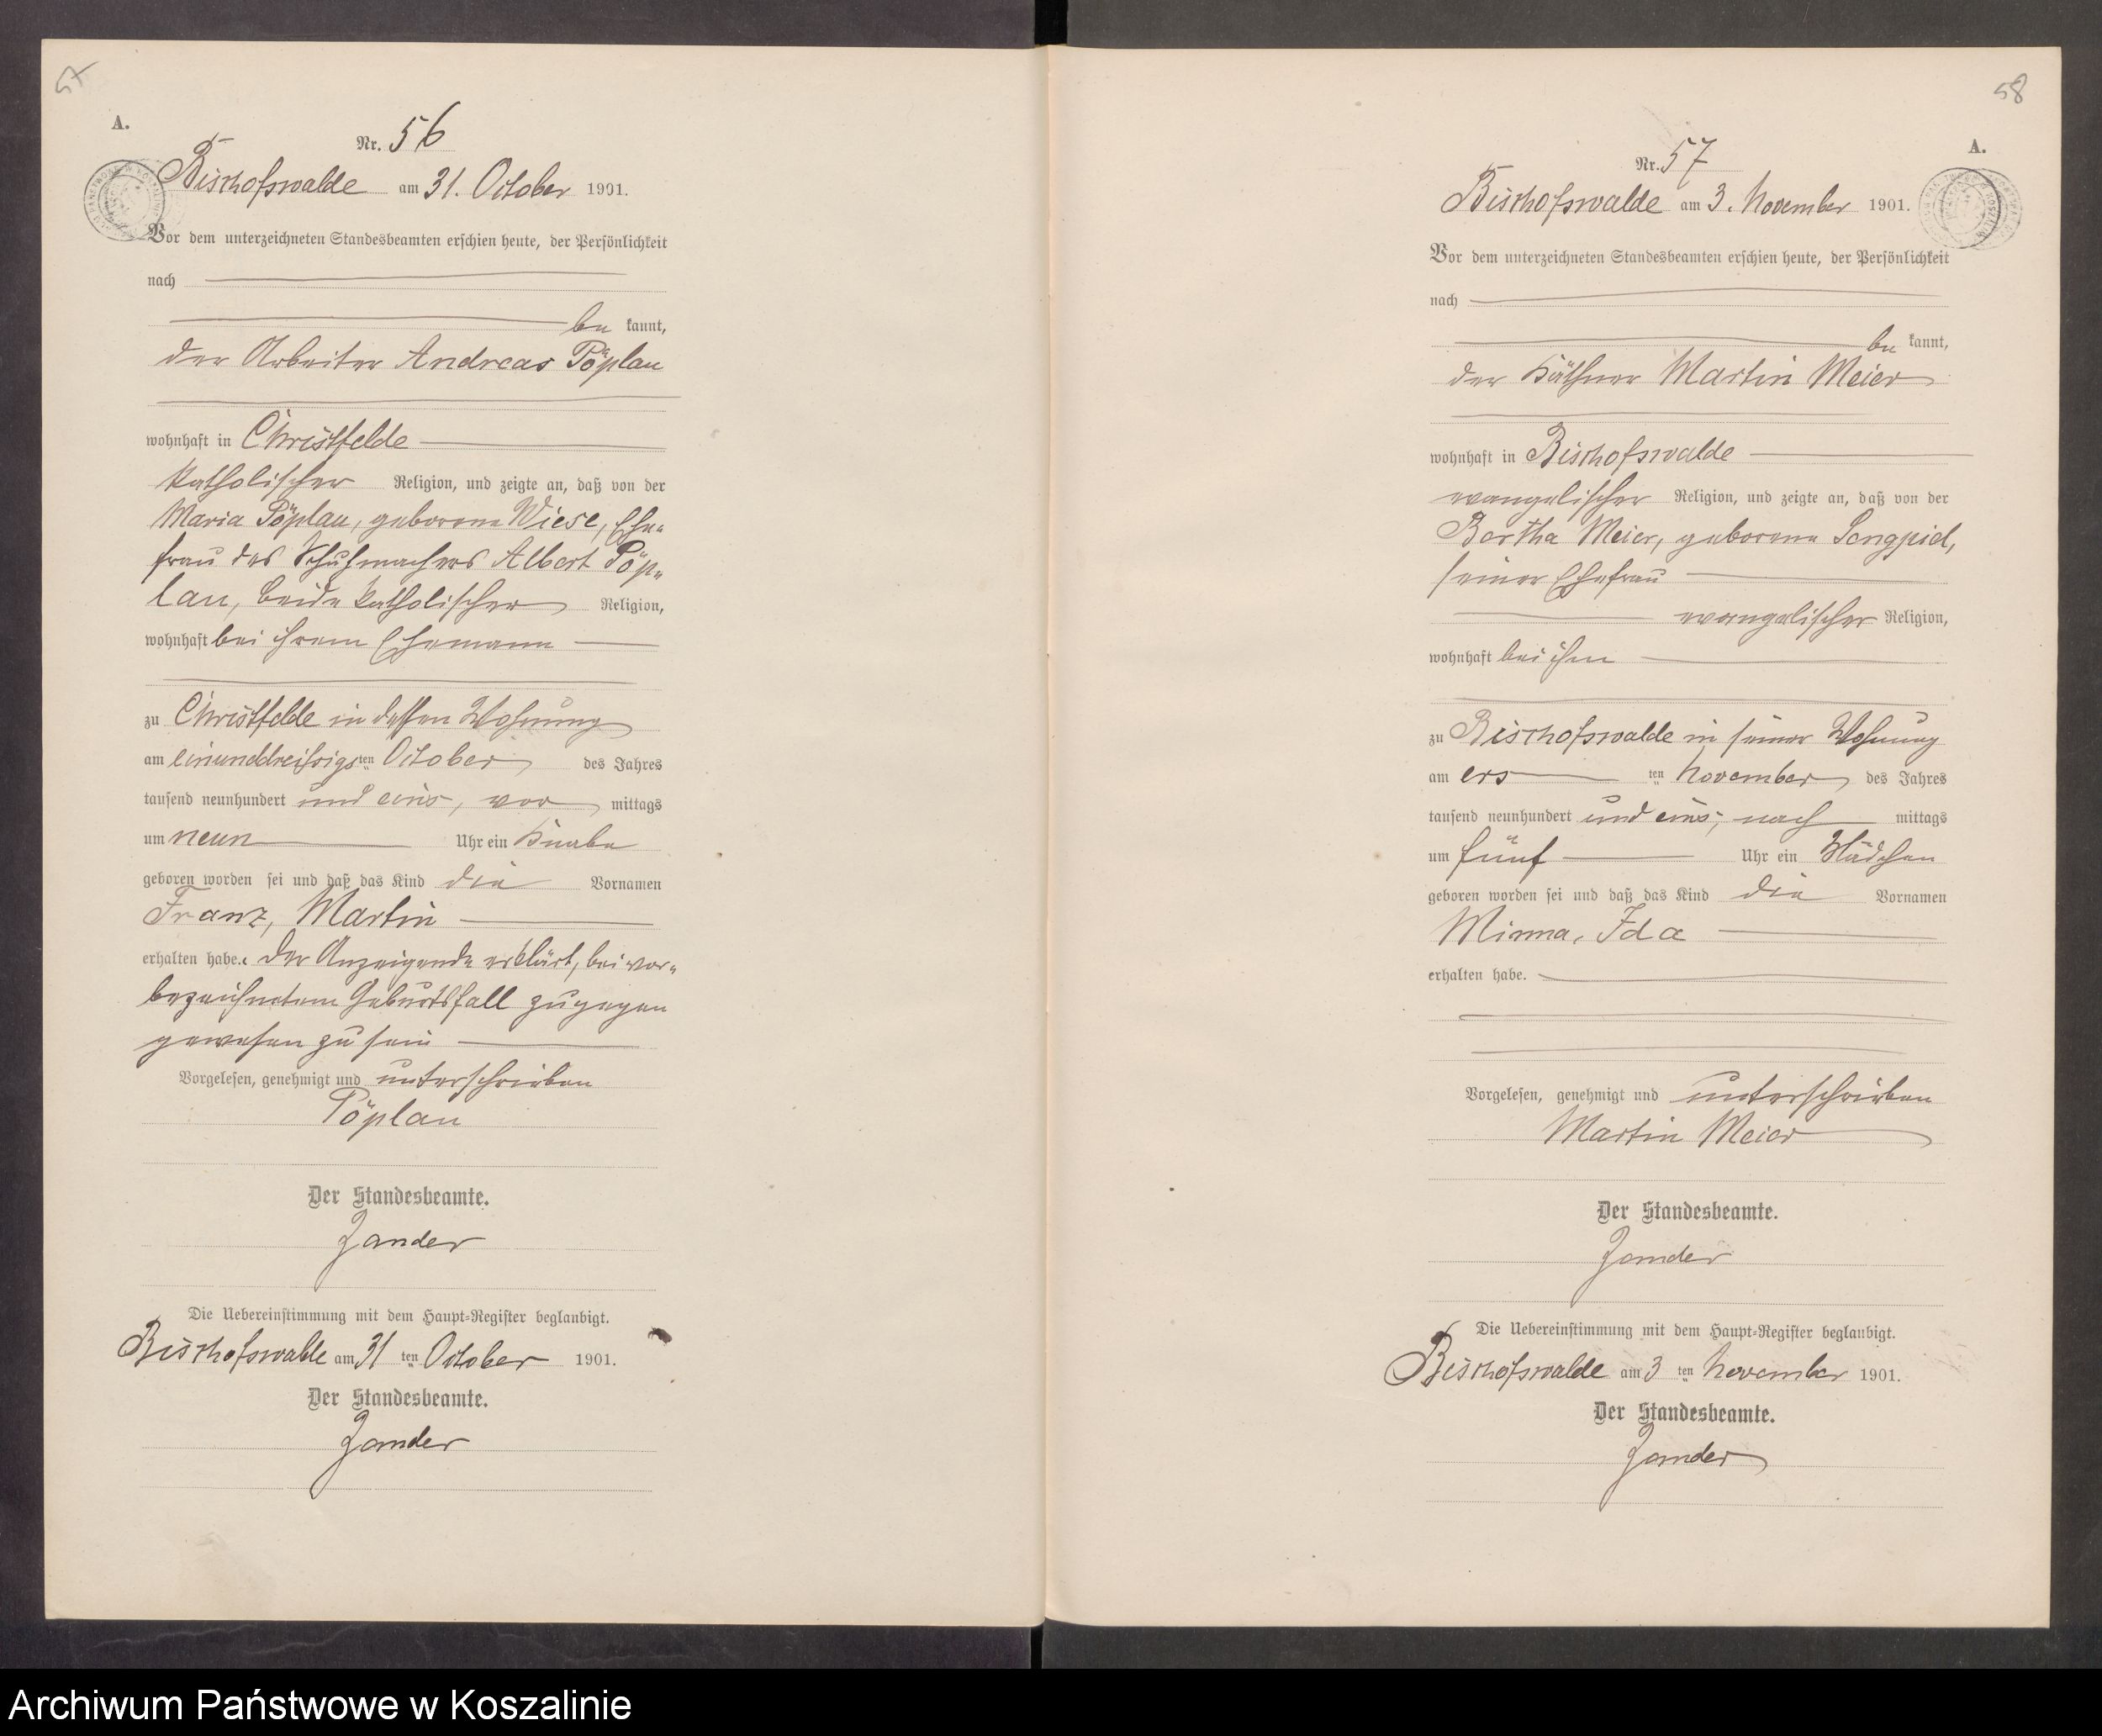 57
A.
Nr. 56
Bischofswalde am 31. October 1901.
Vor dem unterzeichneten Standesbeamten erschien heute, der Persönlichkeit
nach
be kannt,
der Arbeiter Andreas Pöplau
wohnhaft in Christfelde
katholischer Religion, und zeigte an, daß von der
Maria Pöplau, geborene Wiese, Ehe-
frau des Schuhmachers Albert Pöp-
lau, beide katholischer Religion,
wohnhaft bei ihrem Ehemann
zu Christfelde in dessen Wohnung
am einunddreißigsten October des Jahres
tausend neunhundert und eins, vor mittags
um neun Uhr ein Knabe
geboren worden sei und daß das Kind die Vornamen
Franz, Martin
erhalten habe. Der Anzeigende erklärt, bei vor-
bezeichnetem Geburtsfall zugegen
gewesen zu sein
Vorgelesen, genehmigt und unterschrieben
Pöplau
Der Standesbeamte.
Zander
Die Uebereinstimmung mit dem Haupt-Register beglaubigt.
Bischofswalde am 31 ten October 1901.
Der Standesbeamte.
Zander
58
A.
Nr. 57
Bischofswalde am 3. November 1901.
Vor dem unterzeichneten Standesbeamten erschien heute, der Persönlichkeit
nach
be kannt,
der Käthner Martin Meier
wohnhaft in Bischofswalde
evangelischer Religion, und zeigte an, daß von der
Bertha Meier, geborene Sengpiel,
seiner Ehefrau
evangelischer Religion,
wohnhaft bei ihm
zu Bischofswalde in seiner Wohnung
am ers ten November des Jahres
tausend neunhundert und eins, nach mittags
um fünf Uhr ein Mädchen
geboren worden sei und daß das Kind die Vornamen
Minna, Ida
erhalten habe.
Vorgelesen, genehmigt und unterschrieben
Martin Meier
Der Standesbeamte.
Zander
Die Uebereinstimmung mit dem Haupt-Register beglaubigt.
Bischofswalde am 3 ten November 1901.
Der Standesbeamte.
Zander
Archiwum Państwowe w Koszalinie